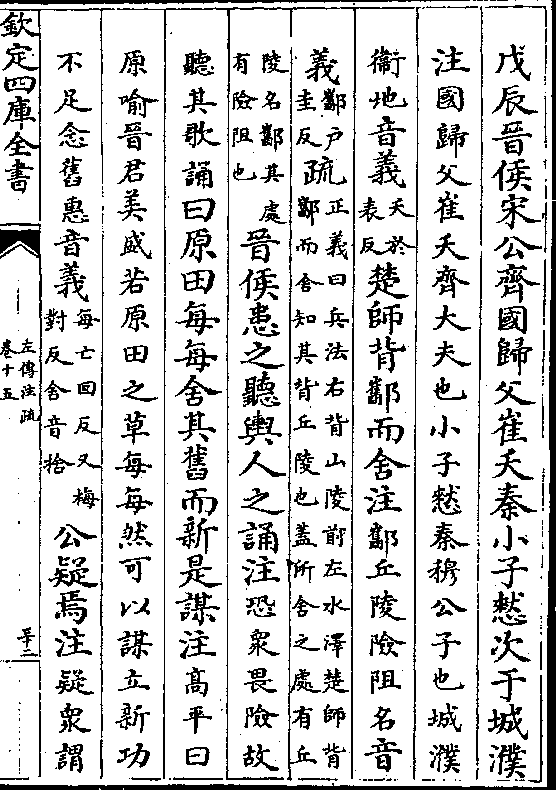 戊辰晉侯宋公齊國歸父崔夭秦小子憖次于城濮
注國歸父崔夭齊大夫也小子憖秦穆公子也城濮
衞地音義夭於表反楚師背酅而舍注酅丘陵險阻名音
義酅户圭反疏正義曰兵法右背山陵前左水澤楚師背酅而舍知其背丘陵也蓋所舍之處有丘
陵名酅其處有險阻也晉侯患之聽輿人之誦注恐衆畏險故
聽其歌誦曰原田每每舍其舊而新是謀注高平曰
原喻晉君美盛若原田之草每每然可以謀立新功
不足念舊惠音義每亡回反又梅對反舍音捨公疑焉注疑衆謂
欽定四庫全書
左傳注疏
卷十五